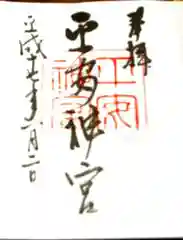 奉拝
平安神宮
平成十七年一月二日